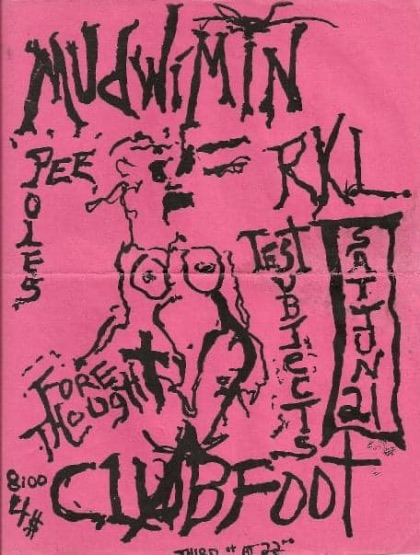 MUdWiMIN
PEE
POLES
RKL
TEST
SUBJECTS
SAT JUN 21
FORE
THOUGHT
8:00
4$
CLUBFOOT
THIRD st AT 22nd